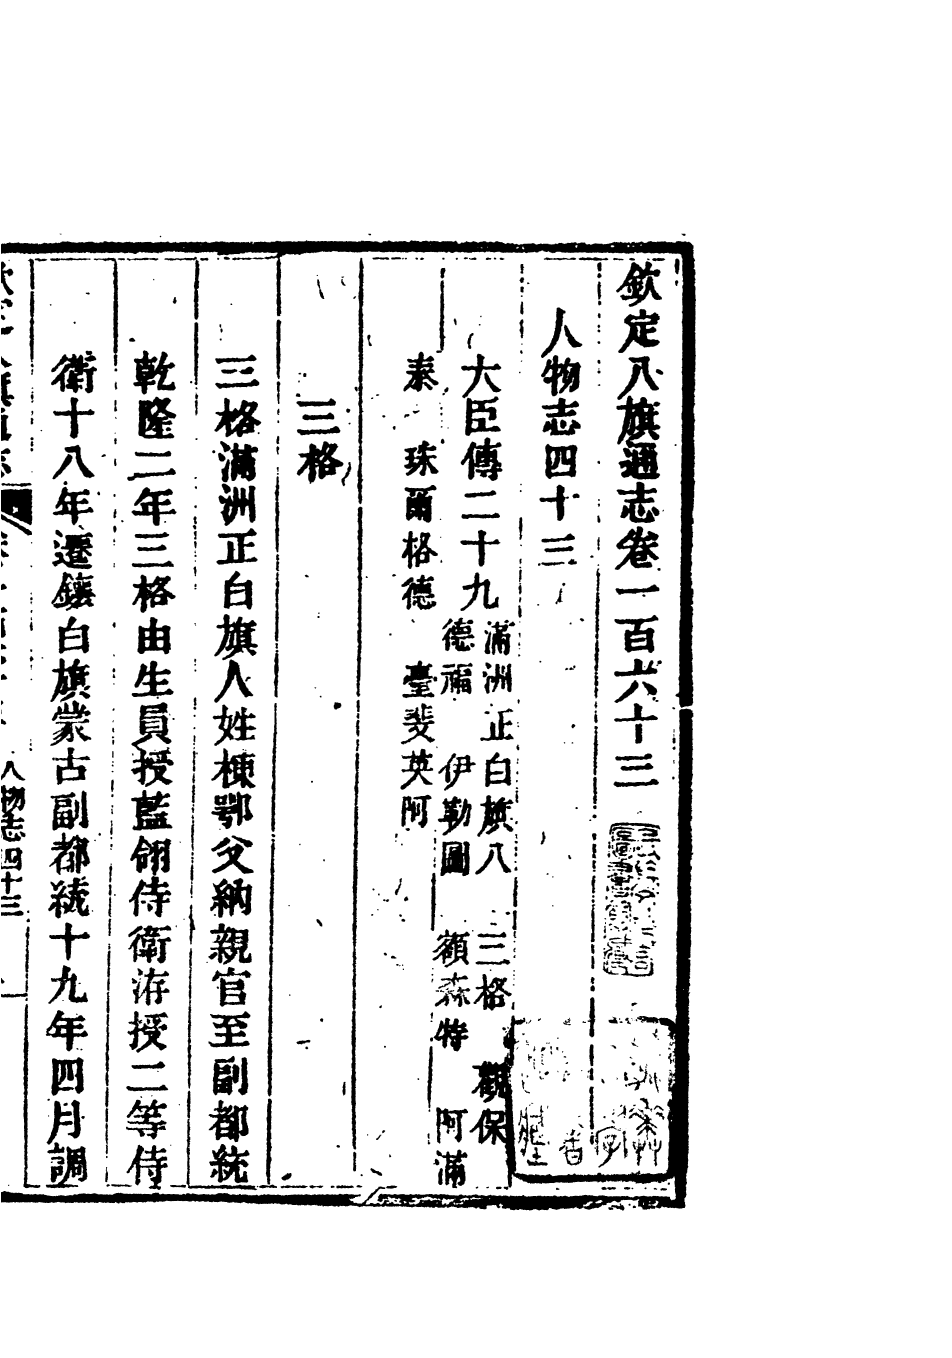 欽定八旗通志卷一百六十三
人物志四十三
大臣傳二十九
滿洲正白旗八 三格 觀保
德福 伊勒圖 額森特 阿滿
泰 珠爾格德 臺斐英阿
三格
三格滿洲正白旗人姓棟鄂父納親官至副都統
乾隆二年三格由生員授藍翎侍衛洊授二等侍
衛十八年遷鑲白旗蒙古副都統十九年四月調
人物志四十三